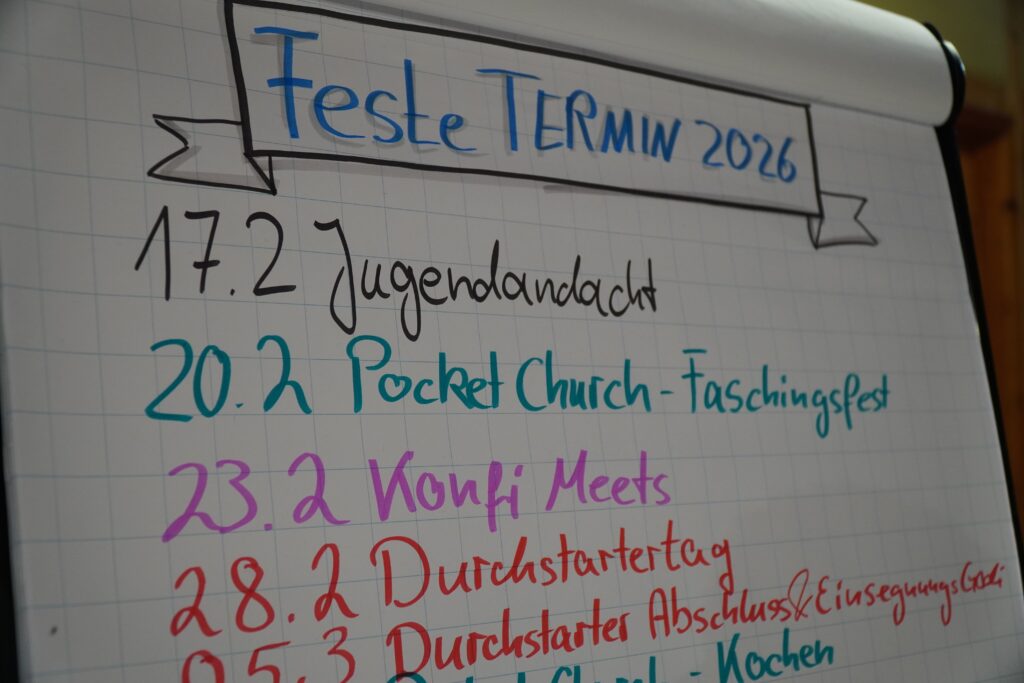 Feste TERMIN 2026
17.2 Jugendandacht
20.2 Pocket Church - Faschingsfest
23.2 Konfi Meets
28.2 Durchstartertag
05.3 Durchstarter Abschluss & EinsegnungsGodi
Church - Kochen